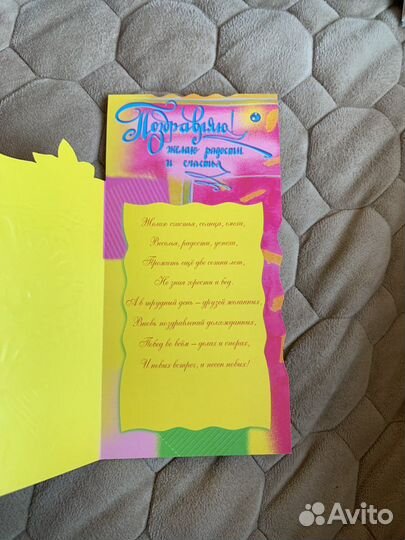 Поздравляю!
желаю радости
и счастья
Желаю счастья, солнца, смеха,
Веселья, радости, успеха,
Прожить ещё две сотни лет,
Не зная горести и бед.
А в трудный день – друзей желанных,
Вновь поздравлений долгожданных,
Побед во всём – делах и спорах,
И новых встреч, и песен новых!
Avito